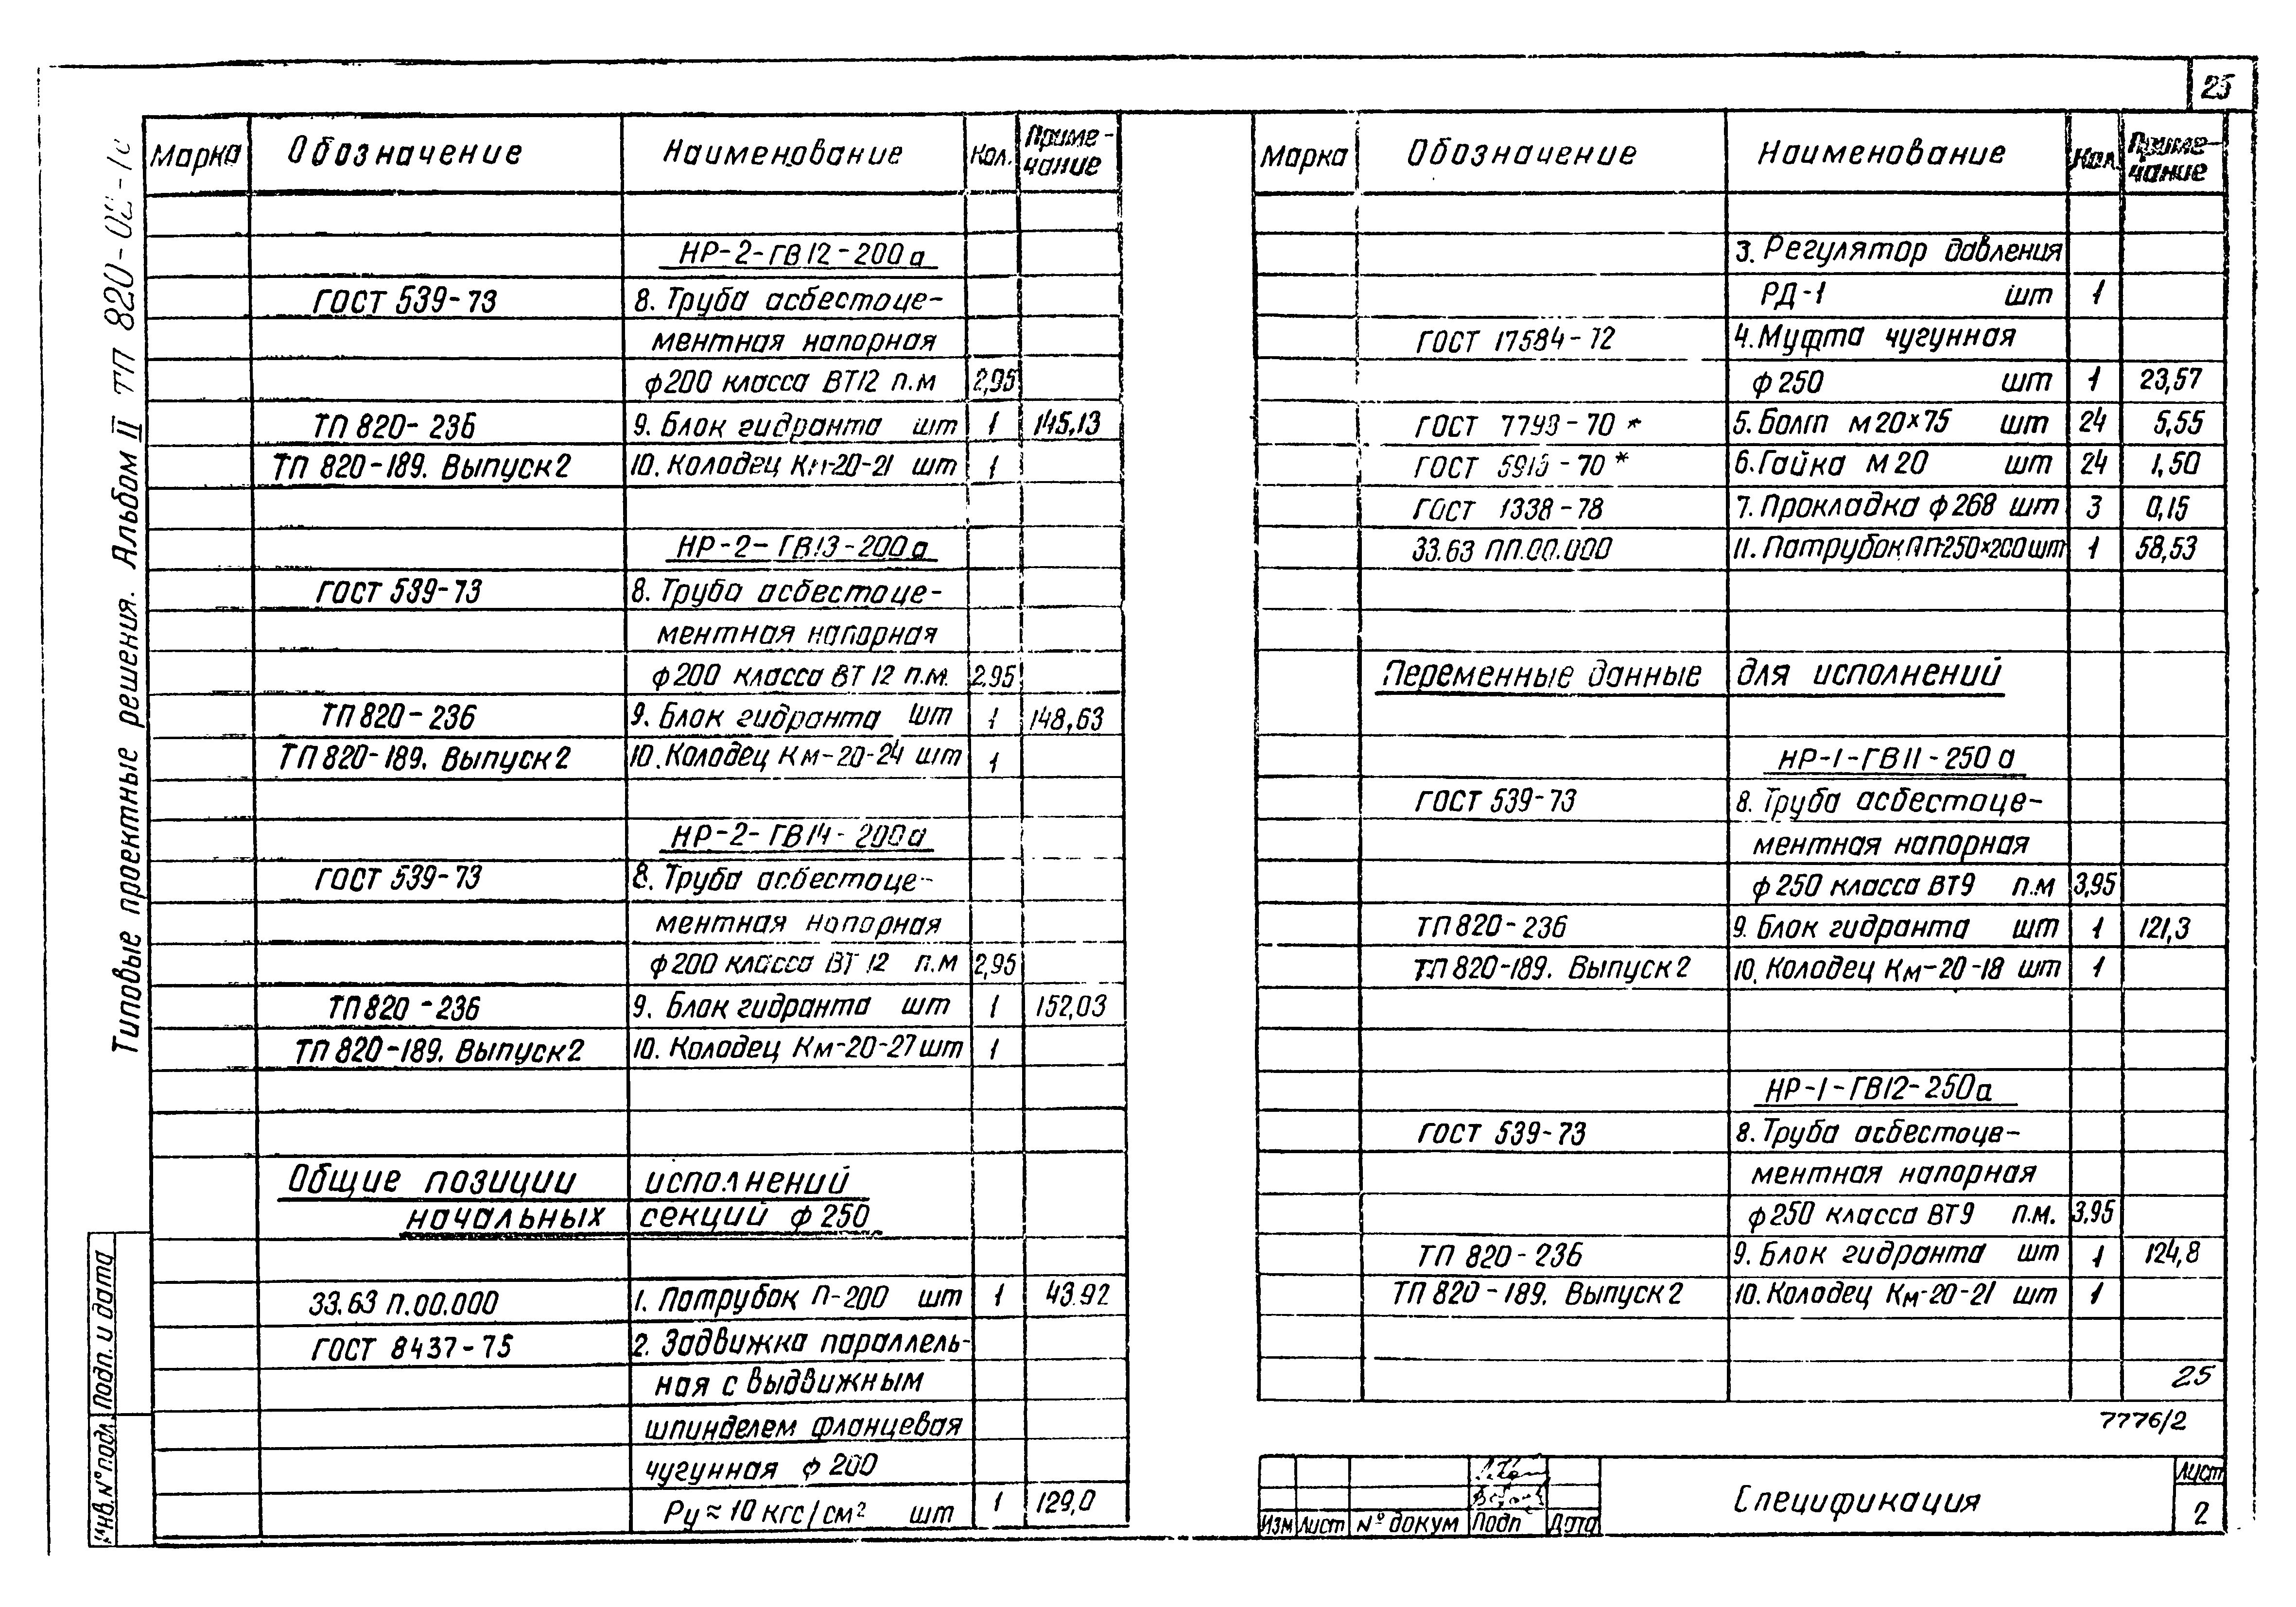 25
Типовые проектные решения. Альбом II ТП 820-
Марка Обозначение Наименование Кол. Приме-
чание
НР-2-ГВ12-200а
ГОСТ 539-73 8. Труба асбестоце-
ментная напорная
ф200 класса ВТ12 п.м 2,95
ТП 820-236 9. Блок гидранта шт 1 145,13
ТП 820-189. Выпуск 2 10. Колодец Км-20-21 шт 1
НР-2-ГВ13-200а
ГОСТ 539-73 8. Труба асбестоце-
ментная напорная
ф200 класса ВТ 12 п.м. 2,95
ТП 820-236 9. Блок гидранта шт 1 148,63
ТП 820-189. Выпуск 2 10. Колодец Км-20-24 шт 1
НР-2-ГВ14-200а
ГОСТ 539-73 8. Труба асбестоце-
ментная напорная
ф200 класса ВТ 12 п.м 2,95
ТП 820-236 9. Блок гидранта шт 1 152,03
ТП 820-189. Выпуск 2 10. Колодец Км-20-27 шт 1
Общие позиции исполнений
начальных секций ф 250
33.63 П.00.000 1. Патрубок П-200 шт 1 43.92
ГОСТ 8437-75 2. Задвижка параллель-
ная с выдвижным
шпинделем фланцевая
чугунная ф 200
Ру ≈ 10 кгс/см² шт 1 129,0
Марка Обозначение Наименование Кол. Приме-
чание
3. Регулятор давления
РД-1 шт 1
ГОСТ 17584-72 4. Муфта чугунная
ф 250 шт 1 23,57
ГОСТ 7798-70 * 5. Болт м20×75 шт 24 5,55
ГОСТ 5915-70 * 6. Гайка м20 шт 24 1,50
ГОСТ 1338-78 7. Прокладка ф 268 шт 3 0,15
33.63 ПП.00.000 11. Патрубок ПП-250×200 шт 1 58,53
Переменные данные для исполнений
НР-1-ГВ11-250а
ГОСТ 539-73 8. Труба асбестоце-
ментная напорная
ф 250 класса ВТ9 п.м 3,95
ТП 820-236 9. Блок гидранта шт 1 121,3
ТП 820-189. Выпуск 2 10. Колодец Км-20-18 шт 1
НР-1-ГВ12-250а
ГОСТ 539-73 8. Труба асбестоце-
ментная напорная
ф 250 класса ВТ9 п.м. 3,95
ТП 820-236 9. Блок гидранта шт 1 124,8
ТП 820-189. Выпуск 2 10. Колодец Км-20-21 шт 1
25
7776/2
Изм Лист № докум Подп Дата
Спецификация
Лист
2
Инв. № подл. Подп. и дата